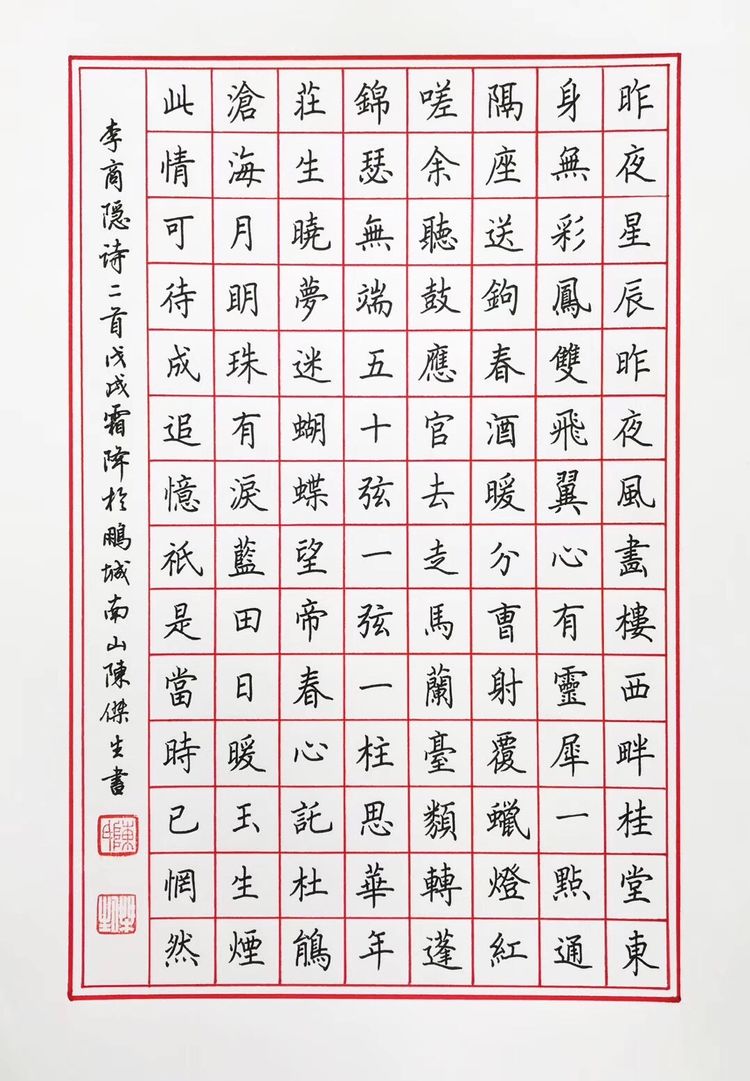 昨夜星辰昨夜風畵樓西畔桂堂東
身無彩鳳雙飛翼心有靈犀一點通
隔座送鉤春酒暖分曹射覆蠟燈紅
嗟余聽鼓應官去走馬蘭臺類轉蓬
錦瑟無端五十弦一弦一柱思華年
莊生曉夢迷蝴蝶望帝春心託杜鵑
滄海月明珠有淚藍田日暖玉生煙
此情可待成追憶祇是當時已惘然
李商隐诗二首戊戌霜降於鵬城南山陳傑生書